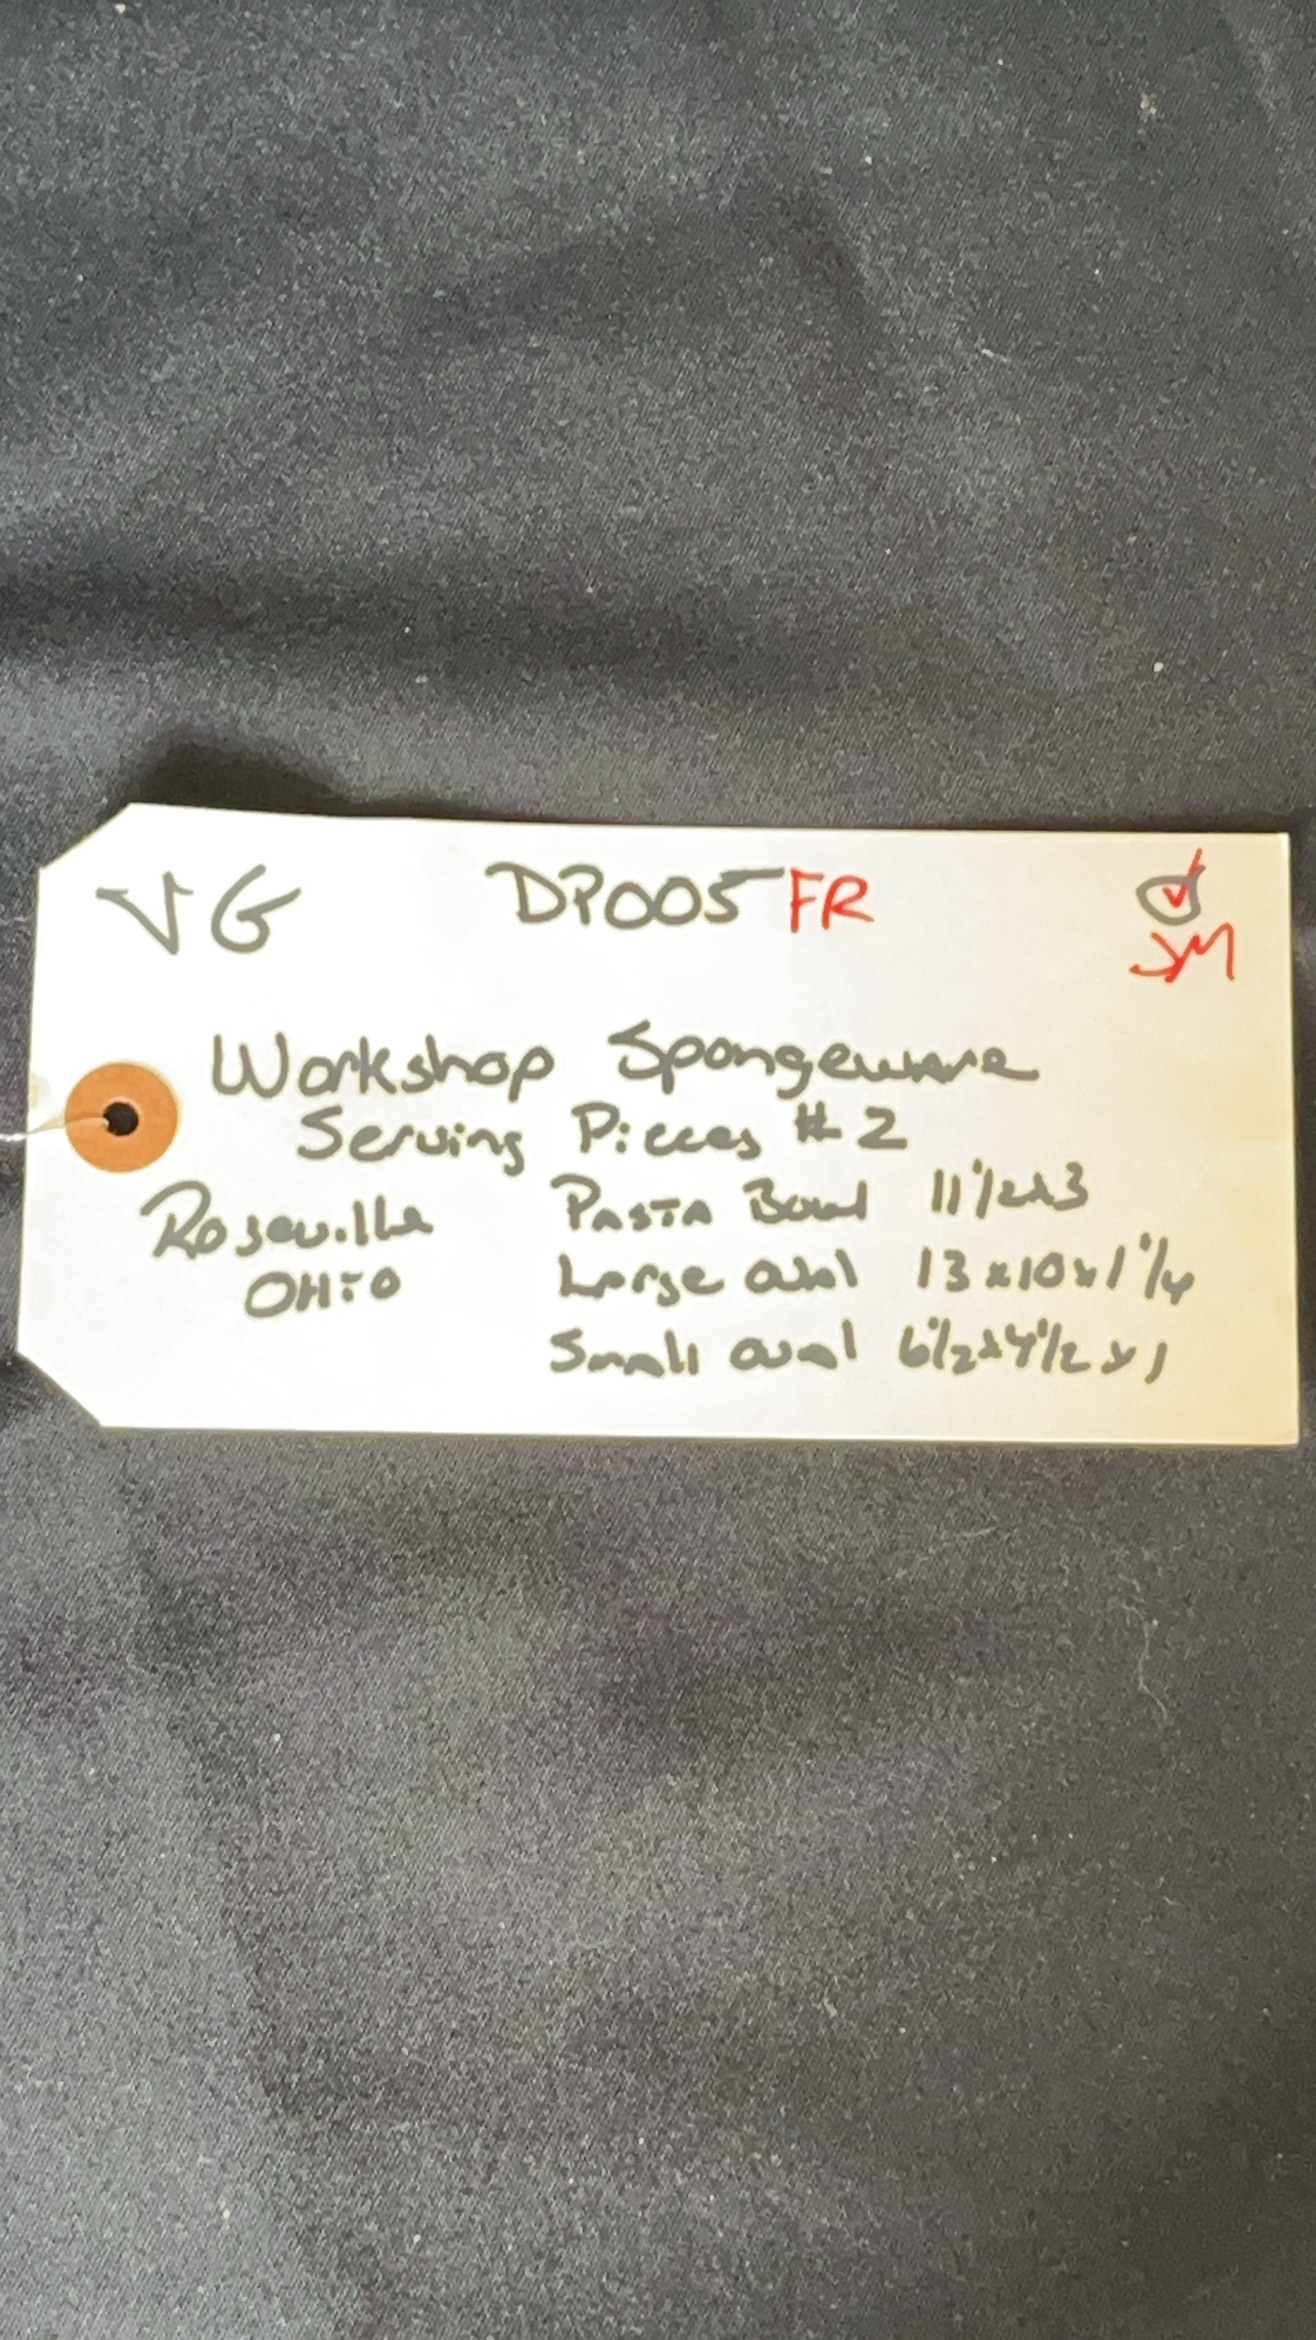 VG DP005 FR
JM
Workshop Spongeware
Serving Pieces # 2
Roseville Pasta Bowl 11 1/2 x 3
OHIO Large oval 13 x 10 x 1 1/4
Small oval 6 1/2 x 4 1/2 x 1